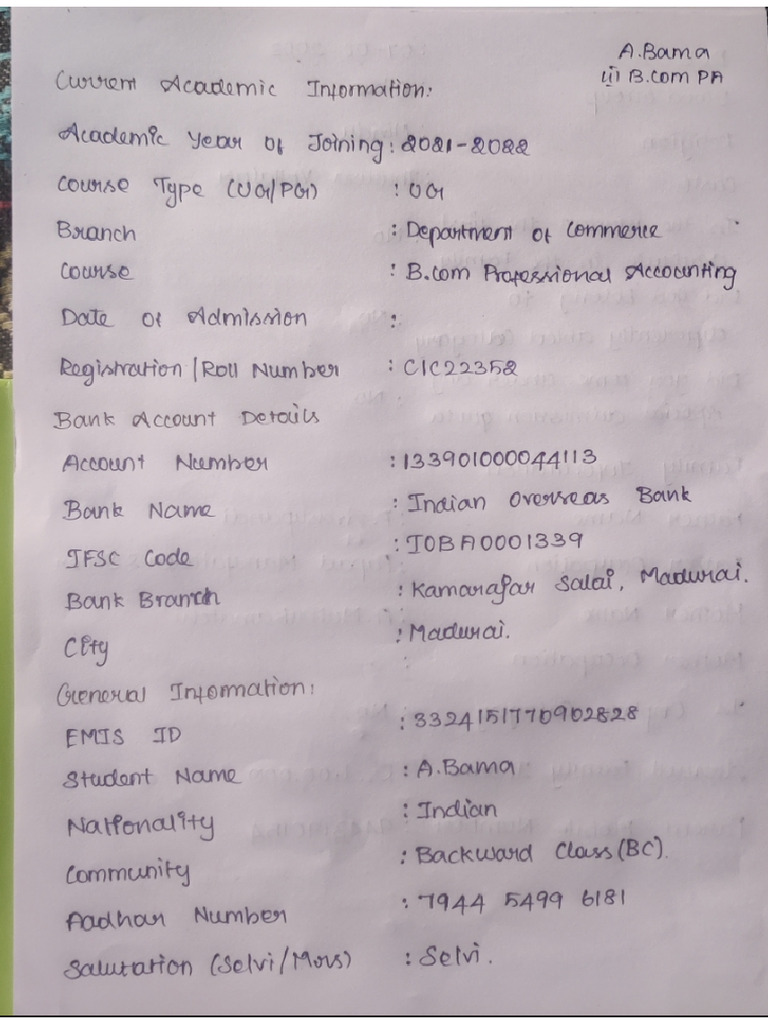 A.Bama
III B.com PA
Current Academic Information:
Academic Year of Joining: 2021-2022
Course Type (UG/PG) : UG
Branch : Department of Commerce
Course : B.com Professional Accounting
Date of Admission :
Registration / Roll Number : C1C22352
Bank Account Details
Account Number : 133901000044113
Bank Name : Indian Overseas Bank
IFSC Code : IOBA0001339
Bank Branch : Kamarajar Salai, Madurai.
City : Madurai.
General Information:
EMIS ID : 3324151770902828
Student Name : A.Bama
Nationality : Indian
Community : Backward Class (BC).
Aadhar Number : 7944 5499 6181
Salutation (Selvi/Mrs) : Selvi.